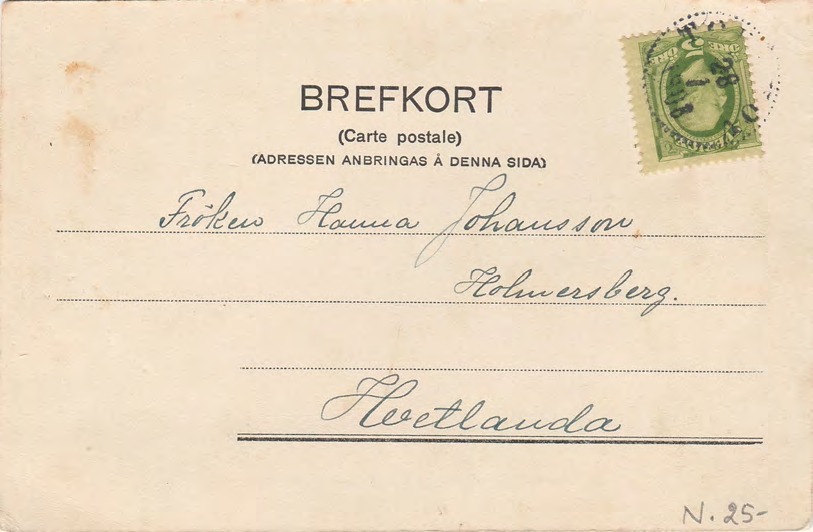 BREFKORT
(Carte postale)
(ADRESSEN ANBRINGAS Å DENNA SIDA)
5 ÖRE
Fröken Hanna Johansson
Holmersberg.
Hvetlanda
N. 25-